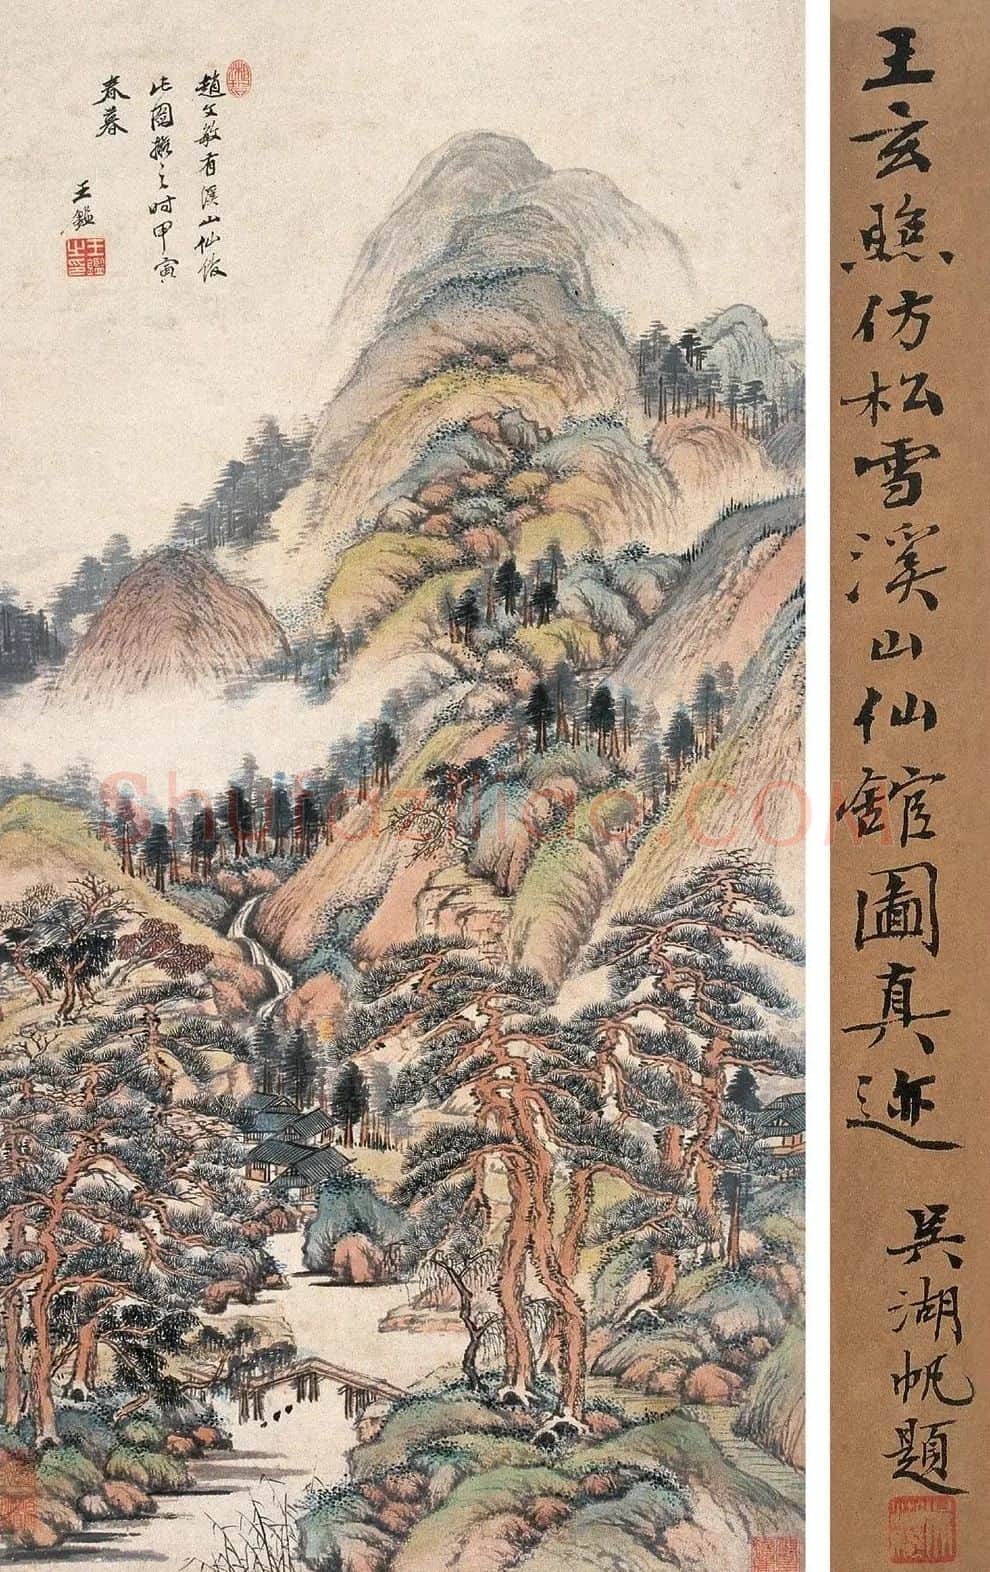 趙文敏有溪山仙館
此圖擬之時甲寅
春暮
王鑑
王鑑之印
王玄照仿松雪溪山仙館圖真迹
吳湖帆題
Shufaziliao.COM